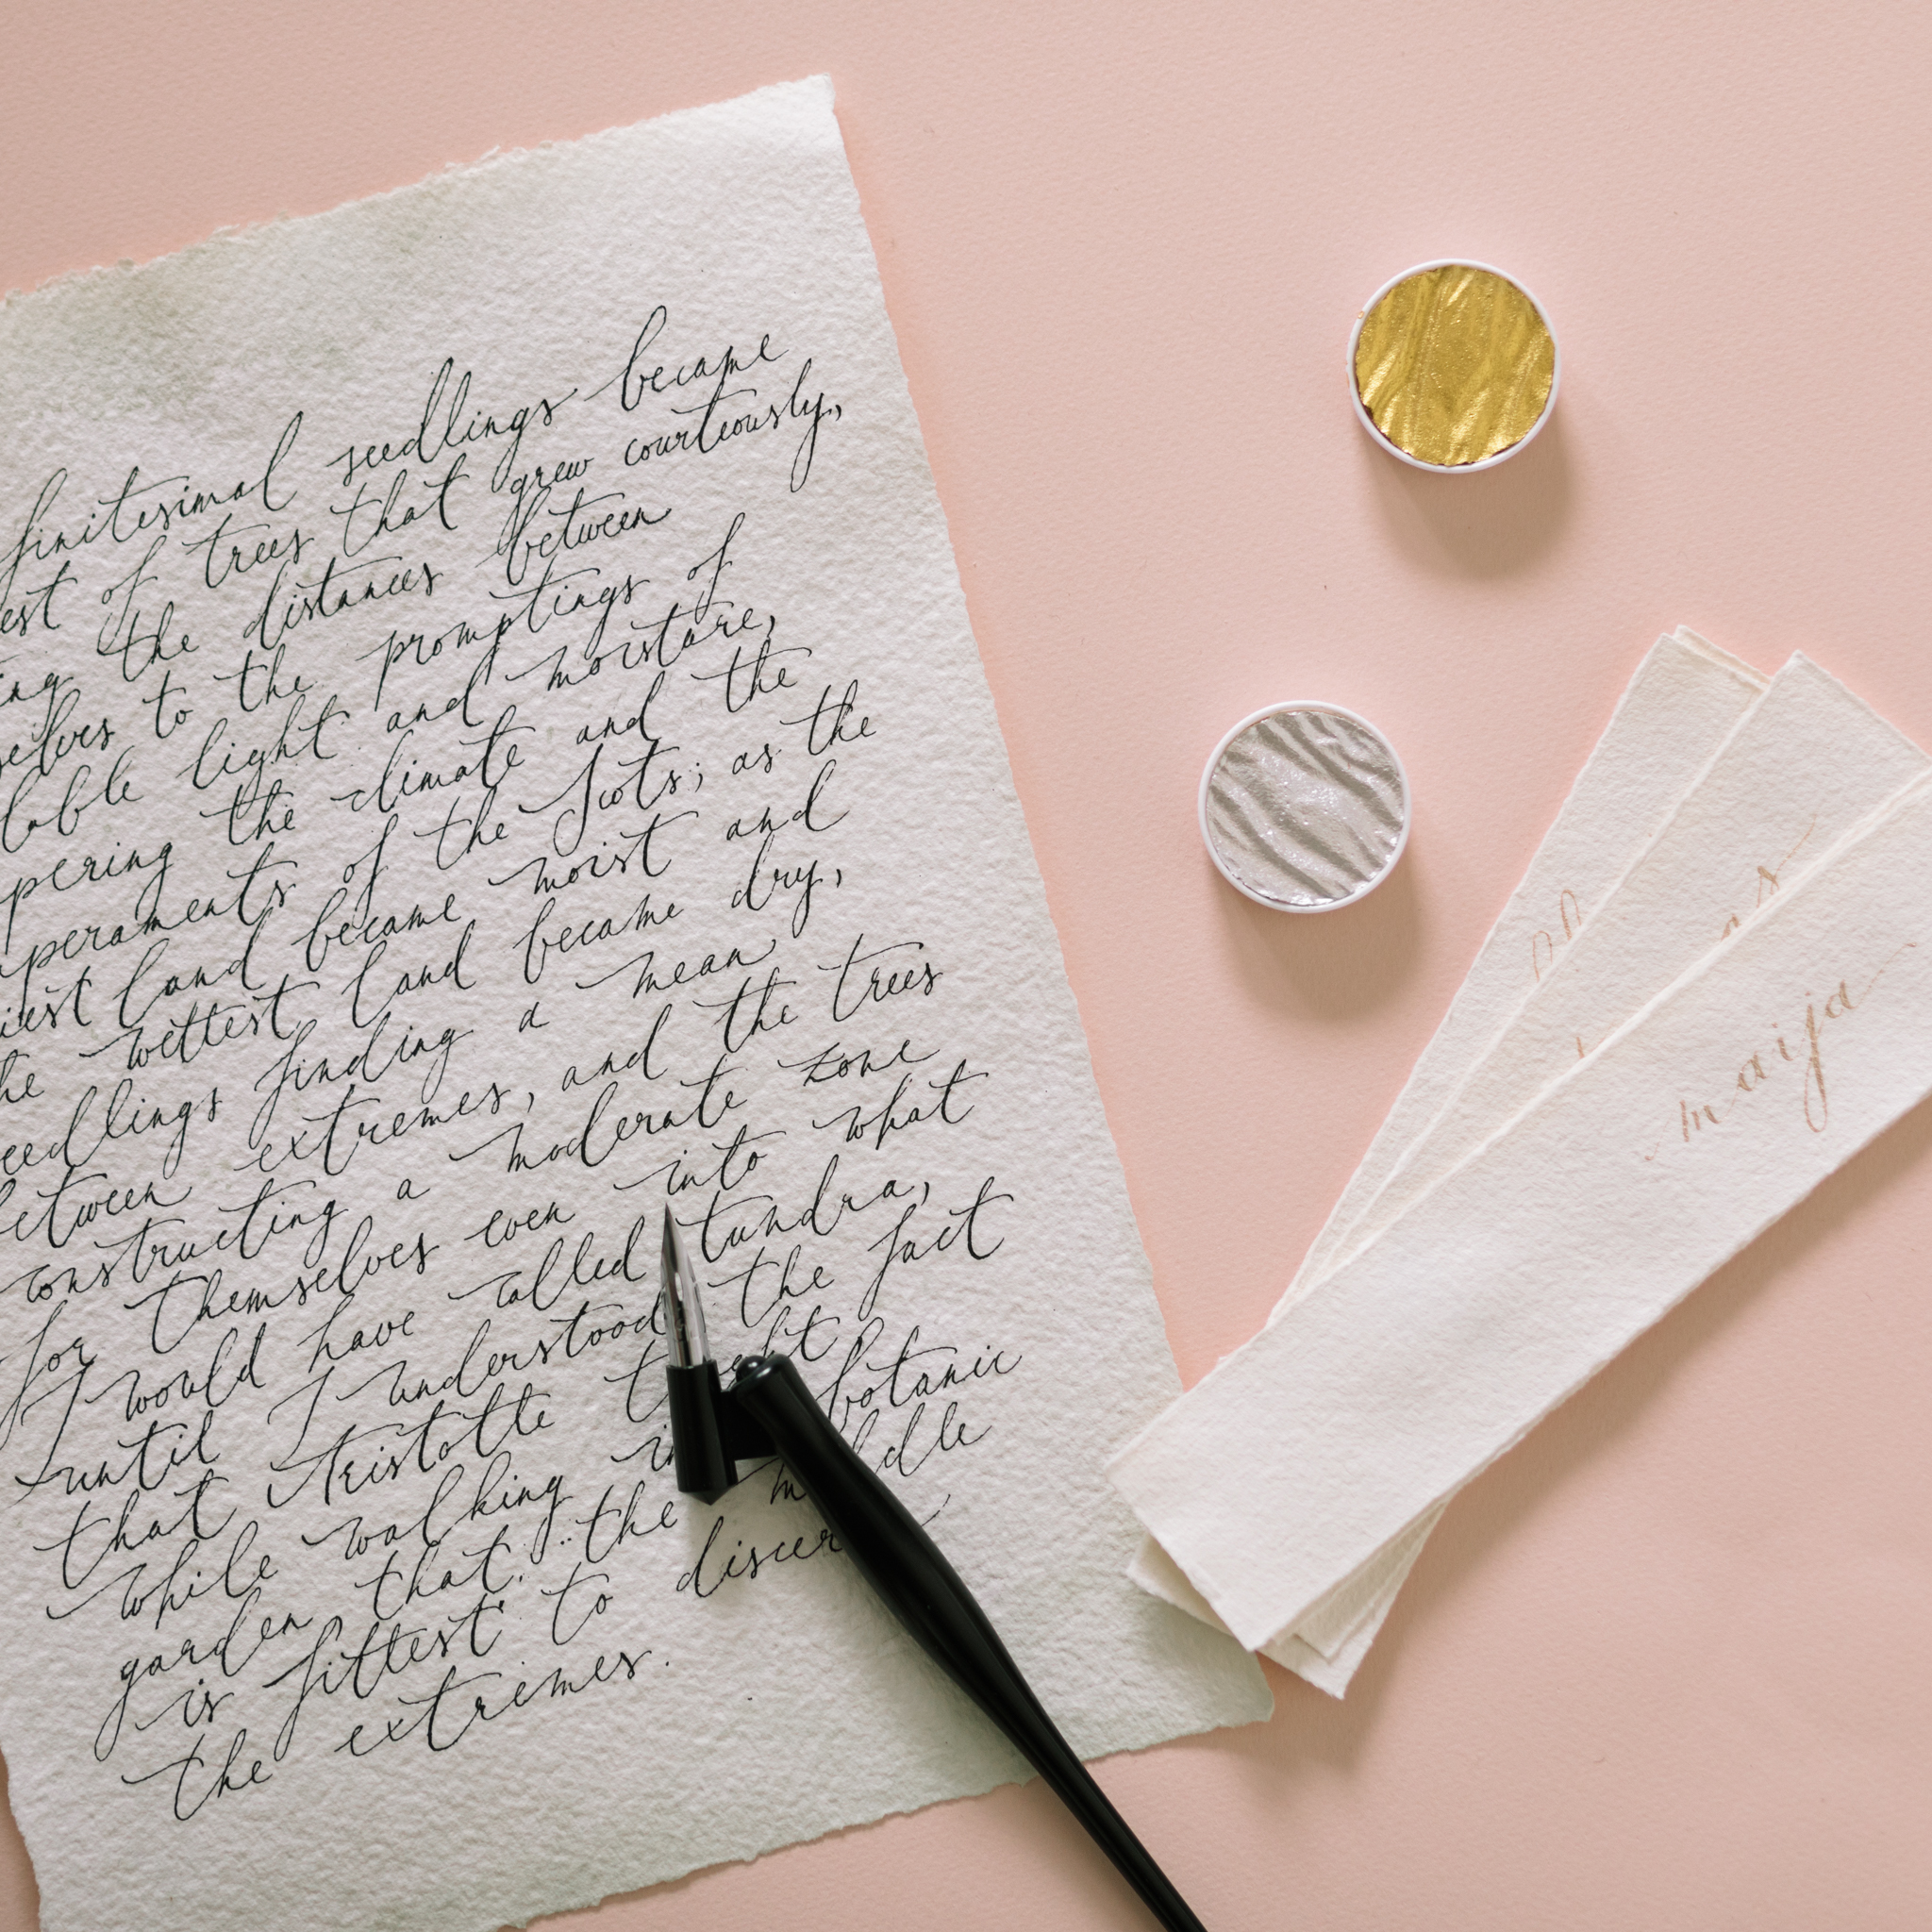 finitesimal seedlings became
est of trees that grew courteously,
ing the distances between
selves to the promptings of
lable light and moisture,
pering the climate and the
peraments of the Scots; as the
iest land became moist and
he wettest land became dry,
eedlings finding a mean
between extremes, and the trees
constructing a moderate zone
for themselves even into what
I would have called tundra,
until I understood the fact
that Aristotle taught
while walking in botanic
garden that: ..the middle
is fittest to discern
the extremes.
maija
as